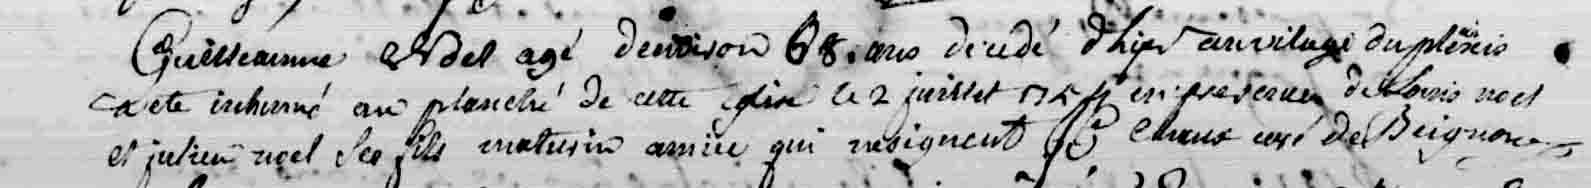 Guilleaume Noel agé denviron 68. ans decedé d'hier au vilage du plessis
a ete inhumé au planché de cette eglise le 2 juillet en presence de Louis noel
et julien noel ses fils maturin amice qui ne signent curé de Beignon